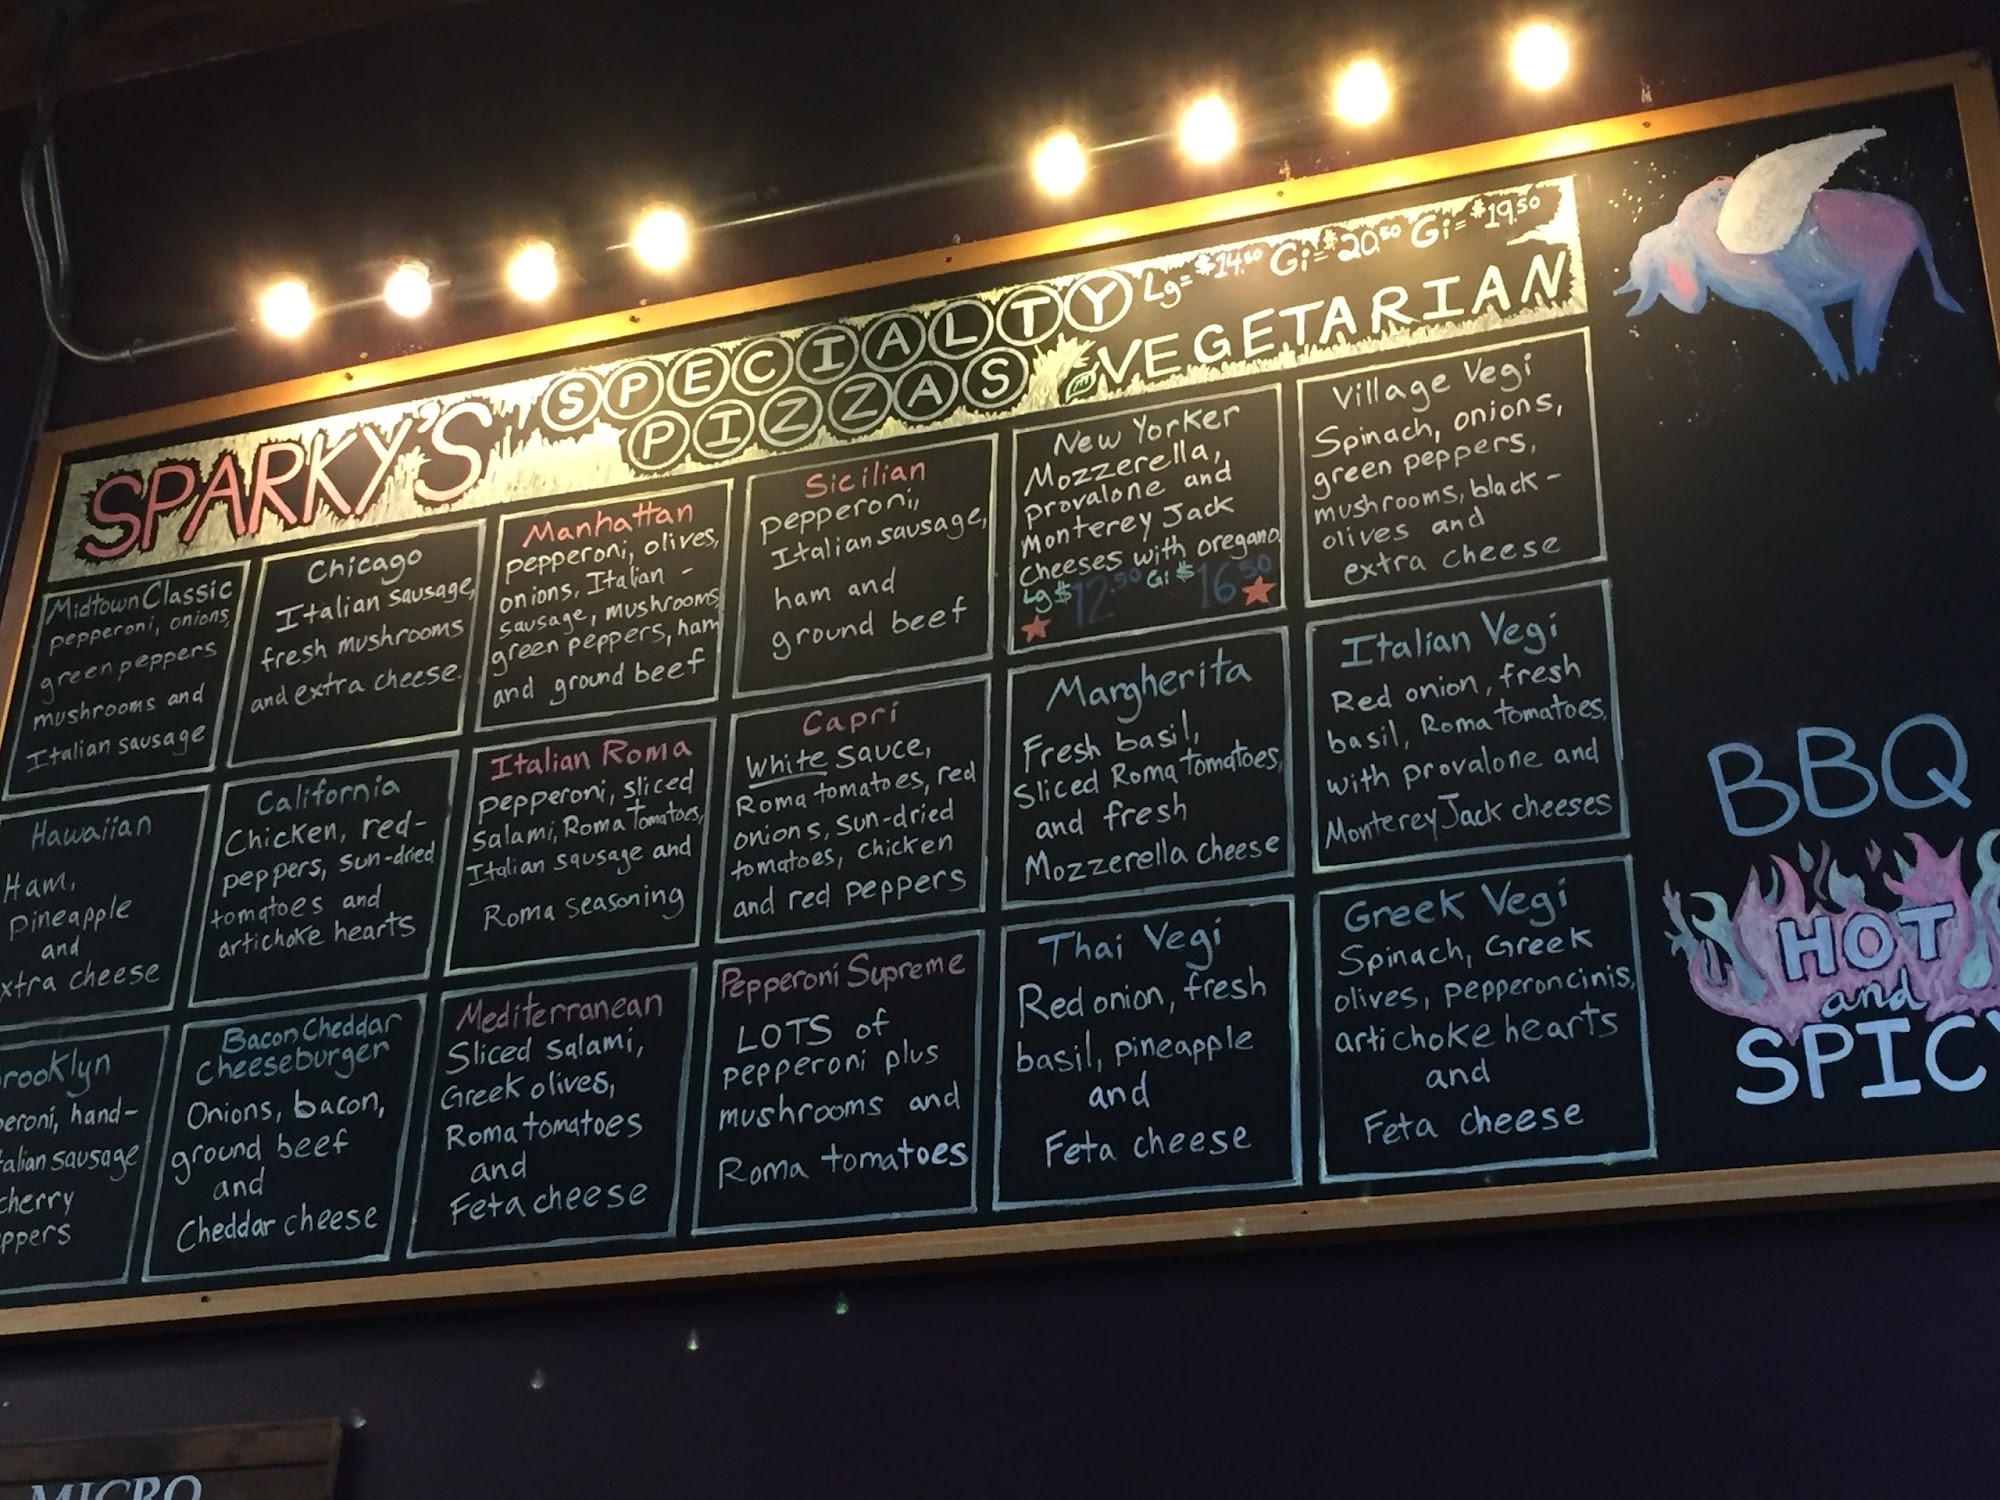 SPARKY'S
SPECIALTY
PIZZAS
Lg= $14.50 Gi= $20.50 Gi= $19.50
VEGETARIAN
Midtown Classic
pepperoni, onions,
green peppers
mushrooms and
Italian sausage
Chicago
Italian sausage,
fresh mushrooms
and extra cheese.
Manhattan
pepperoni, olives,
onions, Italian -
sausage, mushrooms,
green peppers, ham
and ground beef
Sicilian
pepperoni,
Italian sausage,
ham and
ground beef
New Yorker
Mozzerella,
provalone and
Monterey Jack
cheeses with oregano.
Lg $12.50 Gi $16.50
Village Vegi
Spinach, onions,
green peppers,
mushrooms, black -
olives and
extra cheese
Hawaiian
Ham,
Pineapple
and
xtra cheese
California
Chicken, red-
peppers, sun-dried
tomatoes and
artichoke hearts
Italian Roma
pepperoni, sliced
Salami, Roma Tomatoes,
Italian sausage and
Roma seasoning
Capri
White sauce,
Roma tomatoes, red
onions, sun-dried
tomatoes, chicken
and red peppers
Margherita
Fresh basil,
Sliced Roma tomatoes,
and fresh
Mozzerella cheese
Italian Vegi
Red onion, fresh
basil, Roma tomatoes,
with provalone and
Monterey Jack cheeses
rooklyn
eroni, hand-
talian sausage
cherry
ppers
Bacon Cheddar
Cheeseburger
Onions, bacon,
ground beef
and
Cheddar cheese
Mediterranean
Sliced salami,
Greek olives,
Roma tomatoes
and
Feta cheese
Pepperoni Supreme
LOTS of
pepperoni plus
mushrooms and
Roma tomatoes
Thai Vegi
Red onion, fresh
basil, pineapple
and
Feta cheese
Greek Vegi
Spinach, Greek
olives, pepperoncinis,
artichoke hearts
and
Feta cheese
BBQ
HOT
and
SPICY
MICRO